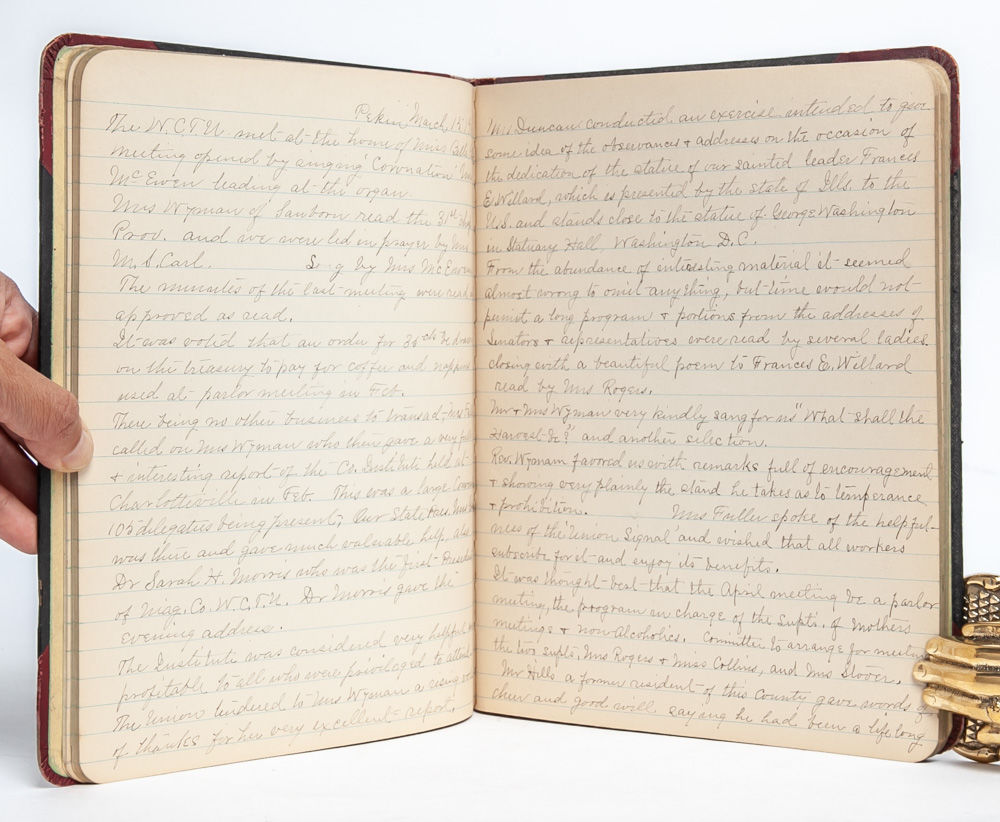 Pekin March 15
The W.C.T.U. met at the home of Miss
meeting opened by singing "Coronation"
McEwen leading at the organ.
Mrs Wyman of Sanborn read the 31st
Prov. and we were led in prayer by Mrs
M. S. Carl. Song by Mrs McEwen
The minutes of the last meeting were read &
approved as read.
It was voted that an order for 36 cts be drawn
on the treasury to pay for coffee and
used at parlor meeting in Feb.
There being no other business to transact,
called on Mrs Wyman who then gave a very full
& interesting report of the Co. Institute held at
Charlotteville in Feb. This was a large
105 delegates being present; Our State Pres. Mrs
was there and gave much valuable help, also
Dr Sarah H. Morris who was the first President
of Niag. Co. W.C.T.U. Dr Morris gave the
evening address.
The Institute was considered very helpful &
profitable to all who were privilaged to attend
The Union tendered to Mrs Wyman a rising vote
of thanks for her very excellent report.
Mrs Duncan conducted an exercise intended to give
some idea of the observances & addresses on the occasion of
the dedication of the statue of our sainted leader Frances
E. Willard, which is presented by the state of Ills. to the
U.S. and stands close to the statue of George Washington
in Statuary Hall Washington D.C.
From the abundance of interesting material it seemed
almost wrong to omit anything, but time would not
permit a long program & portions from the addresses of
Senators & representatives were read by several ladies
closing with a beautiful poem to Frances E. Willard
read by Mrs Rogers.
Mr & Mrs Wyman very kindly sang for us "What shall the
Harvest be?" and another selection.
Rev. Wyman favored us with remarks full of encouragement
& showing very plainly the stand he takes as to temperance
& prohibition. Mrs Fuller spoke of the helpful-
ness of the Union Signal and wished that all workers
subscribe for it and enjoy its benefits.
It was thought best that the April meeting be a parlor
meeting, the program in charge of the Supts. of Mothers
meetings & non-Alcoholics. Committee to arrange for meeting
the two supts. Mrs Rogers & Miss Collins, and Mrs Stover.
Mr Hills a former resident of this county gave words of
cheer and good will saying he had been a life long